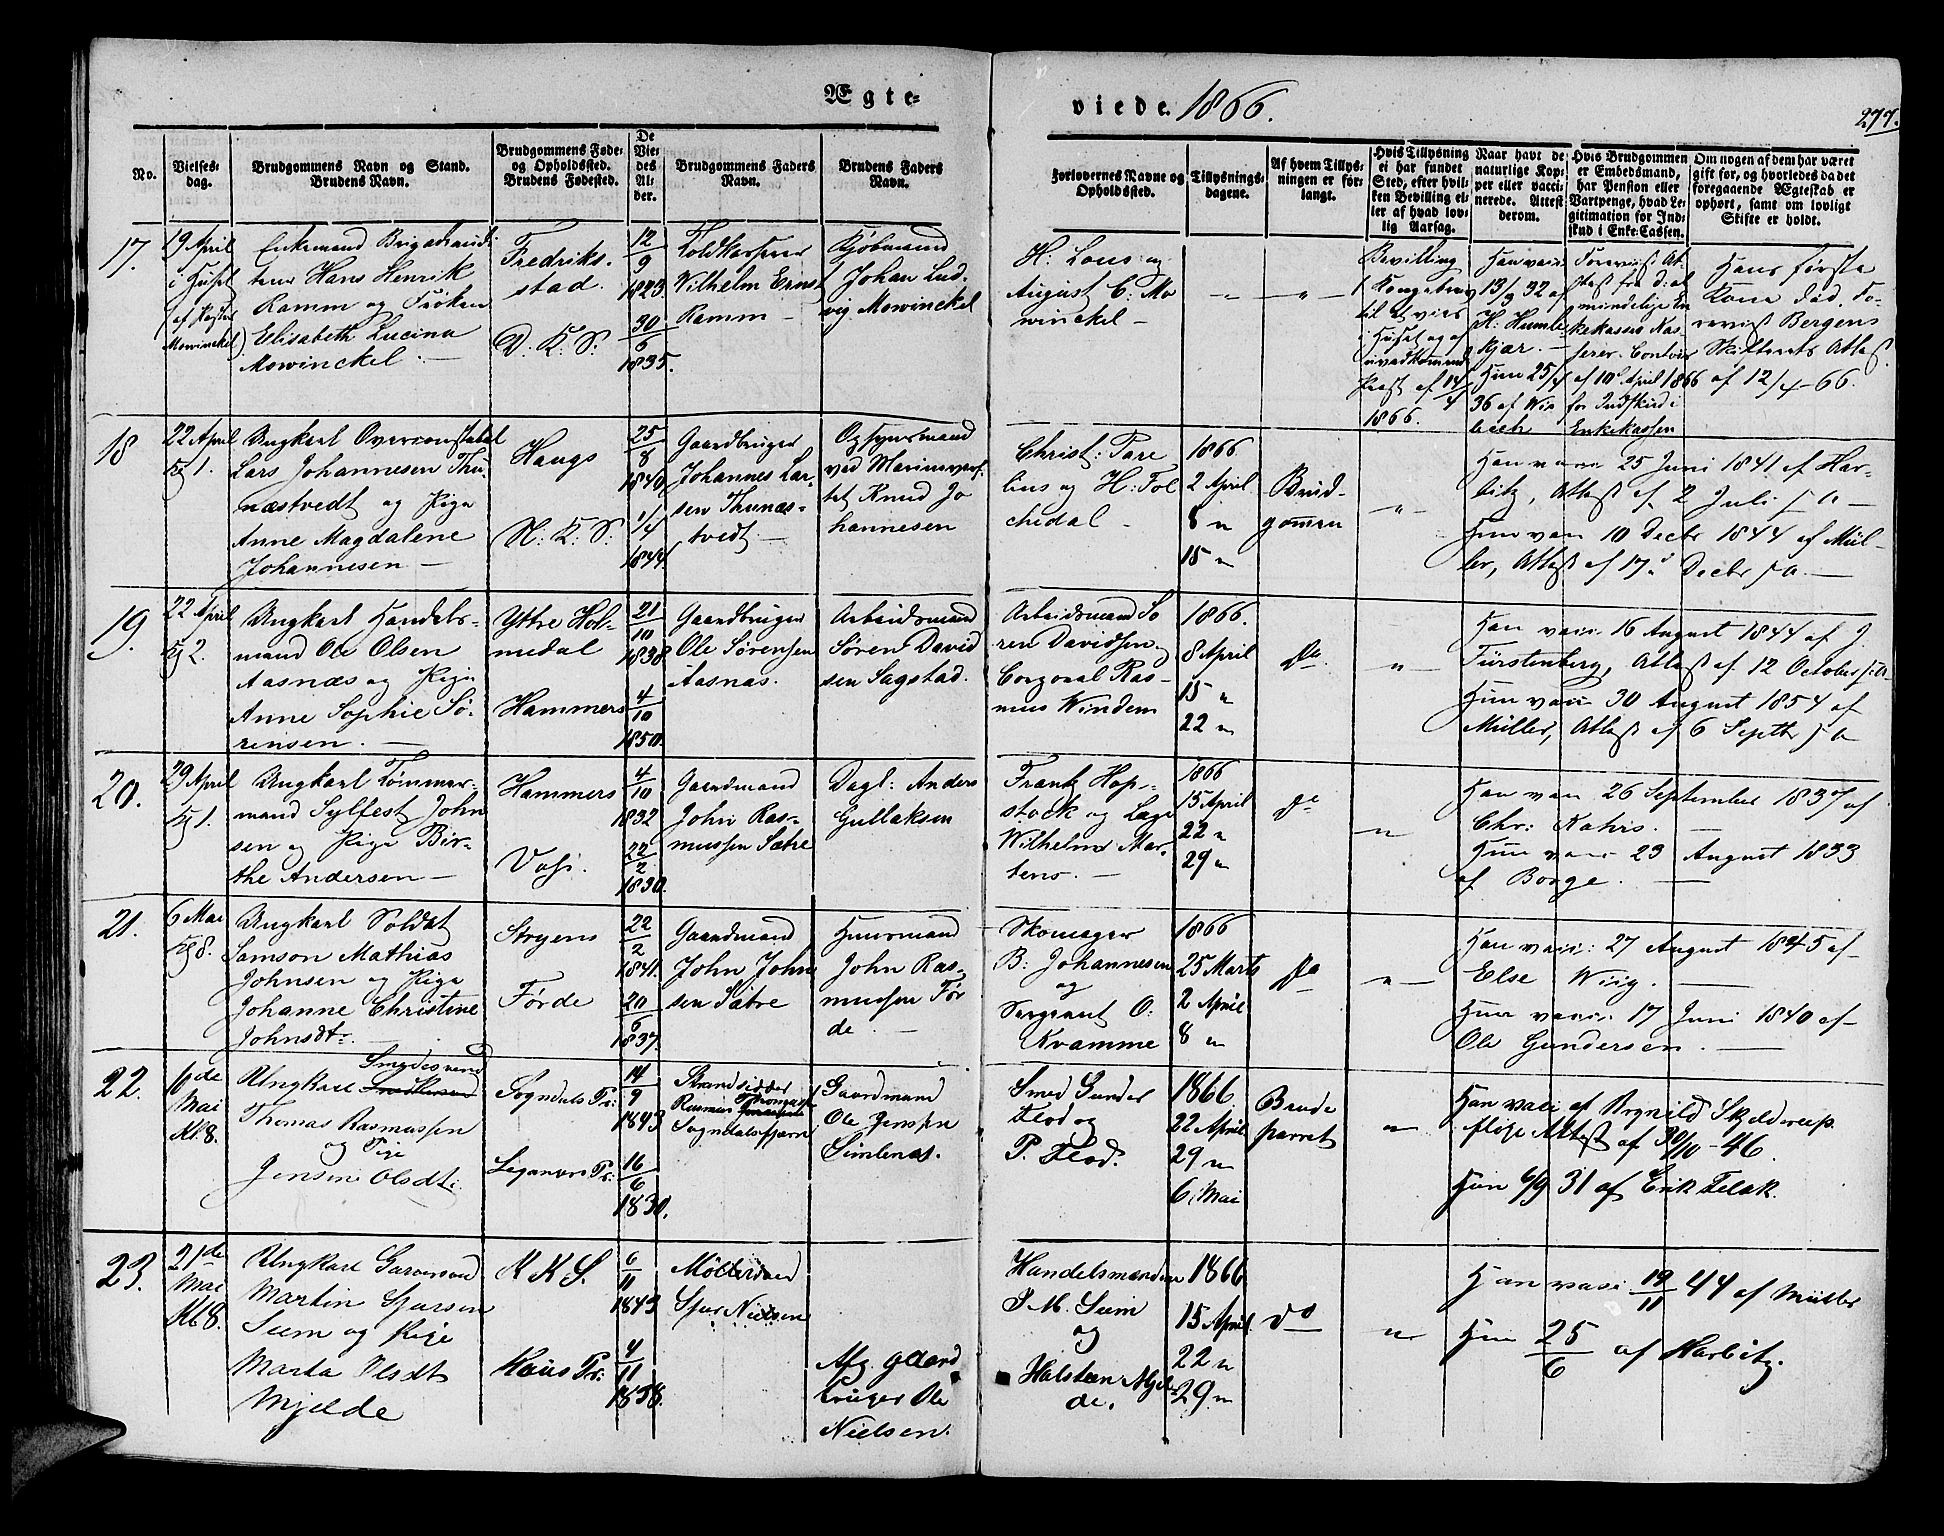 Ægte-
viede 1866.
277.
No.
Vielses-
dag.
Brudgommens Navn og Stand.
Brudens Navn.
Brudgommens Føde-
og Opholdssted.
Brudens Fødested.
De
Vie-
des
Al-
der.
Brudgommens Faders
Navn.
Brudens Faders
Navn.
Forlovernes Navne og
Opholdssted.
Tillysnings-
dagene.
Af hvem Tillys-
ningen er for-
langt.
Hvis Tillysning
ei har fundet
Sted, efter hvil-
ken Bevilling el-
ler af hvad lov-
lig Aarsag.
Naar havt de
naturlige Kop-
per eller vacci-
nerede. Attest
derom.
Hvis Brudgommen
er Embedsmand,
har Pension eller
Vartpenge, hvad Le-
gitimation for Ind-
skud i Enke-Cassen.
Om nogen af dem har været
gift før, og hvorledes da det
foregaaende Ægteskab er
ophørt, samt om lovligt
Skifte er holdt.
17.
19 April
i Huset
af Pastor
Mowinckel)
Enkemand Brigadeaudi-
teur Hans Henrik
Ramm og Frøken
Elisabeth Lucina
Mowinckel
Fredriks-
stad.
D. K. S.
12/9
1823.
30/6
1835.
Toldkasserer
Wilhelm Ernst
Ramm
Kjøbmand
Johan Lud-
vig Mowinckel
H. Lous og
August C: Mo
winckel
Bevilling
i Kongebrev
til at vies
i Huset og af
uvedkommend
Præst af 14/4
1866.
Han vacc:
13/9 32 af
H. Humle
kjær.
Hun 25/4
36 af Wis
beeh
Forevist At-
test fra d: al
mindelige En
kekasses Kas
serer Contoir
af 10de April 1866
for Indskud i
Enkekassen
Hans første
Kone død. Fo-
revist Bergens
Skifterets Attest
af 12/4-66.
18
22 April
Kl 1.
Ungkarl Overconstabel
Lars Johannesen Thu-
næstvedt og Pige
Anne Magdalene
Johannesen
Haugs
N: K: S:
25/8
1840
1/4
1844
Gaardbruger
Johannes Lar-
sen Thunæs-
tvedt.
Opsynsmand
ved Marinevær-
tet Knud Jo
hannesen
Christ: Pare
lius og H: Fol
chedal
1866
2 April
8 "
15 "
Brud-
gommen
"
Han vacc 25 Juni 1841 af Har-
bitz, Attest af 2 Juli s A
Hun vacc 10 Decbr 1844 af Mül-
ler, Attest af 17de Decbr s A.
19.
22 April
Kl 2.
Ungkarl Handels-
mand Ole Olsen
Aasnæs og Pige
Anne Sophie Sö-
rensen.
Yttre Hol-
medal
Hammers
21/10
1838
4/10
1850.
Gaardbruger
Ole Sørensen
Aasnæs.
Arbeidsmand
Søren David
sen Sagstad.
Arbeidsmand Sø
ren Davidsen,
Corporal Ras-
mus Winden
1866.
8 April
15 "
22 "
Do
"
Han vacc 16 August 1844 af J.
Fürstenberg, Attest af 12 October s A
Hun vacc 30 August 1854 af
Müller, Attest af 6 Septbr s A
20.
29 April
Kl 1.
Ungkarl Tømmer-
mand Sylfest John
sen og Pige Bir-
the Andersen
Hammers
Voss.
4/10
1832
22/2
1830.
Gaardmand
John Ras-
mussen Sætre
Dagl: Anders
Gullaksen
Frantz Hop-
stock og Læge
Wilhelm Mar-
tens.
1866
15 April
22 "
29 "
Do
"
Han vacc 26 September 1837 af
Chr: Kahrs.
Hun vacc 23 August 1833
af Borge.
21.
6 Mai
Kl 8.
Ungkarl Soldat
Samson Mathias
Johnsen og Pige
Johanne Christine
Johnsdtr.
Stryens
Førde
22/2
1841.
20/6
1837.
Gaardmand
John John
sen Sætre
Huusmand
John Ras-
mussen Før
de.
Skomager
B: Johannesen
og
Sergeant O:
Kvamme
1866
25 Marts
2 April
8 "
Do
"
Han vacc: 27 August 1845 af
Else Wiig.
Hun vacc: 17 Juni 1840 af
Ole Gundersen
22.
6de
Mai
Kl. 8.
Ungkarl Smedesvend
Thomas Rasmussen
og Pige
Jensine Olsdt:
Sogndals Pr:
Leganers Pr:
14/9
1843
16/6
1830.
Strandsidder
Rasmus Thomassen
Sogndalsfjæren
Gaardmand
Ole Jensen
Simlenæs.
Smed Gunder
Flod og
P. Flod.
1866
22 April
29 "
6 Mai
Brude
parret
"
Han vacc af Brynild Skjelderup
ifølge Attest af 30/10-46.
Hun 6/9 31 af Erik Felak.
23.
21de
Mai
Kl 8.
Ungkarl Garversvend
Martin Sjursen
Seim og Pige
Marta Olsdt
Mjelde
K K S.
Haus Pr:
6/11
1843
4/11
1838.
Møllersvend
Sjur Nielsen
Afg. Gaard
bruger Ole
Nielsen.
Handelsmændene
P. M. Seim
og
Halsten Mjel-
de.
1866
15 April
22 "
29 "
do
"
Han vacc 19/11 44 af Müller
Hun 25/6 af Harbitz.